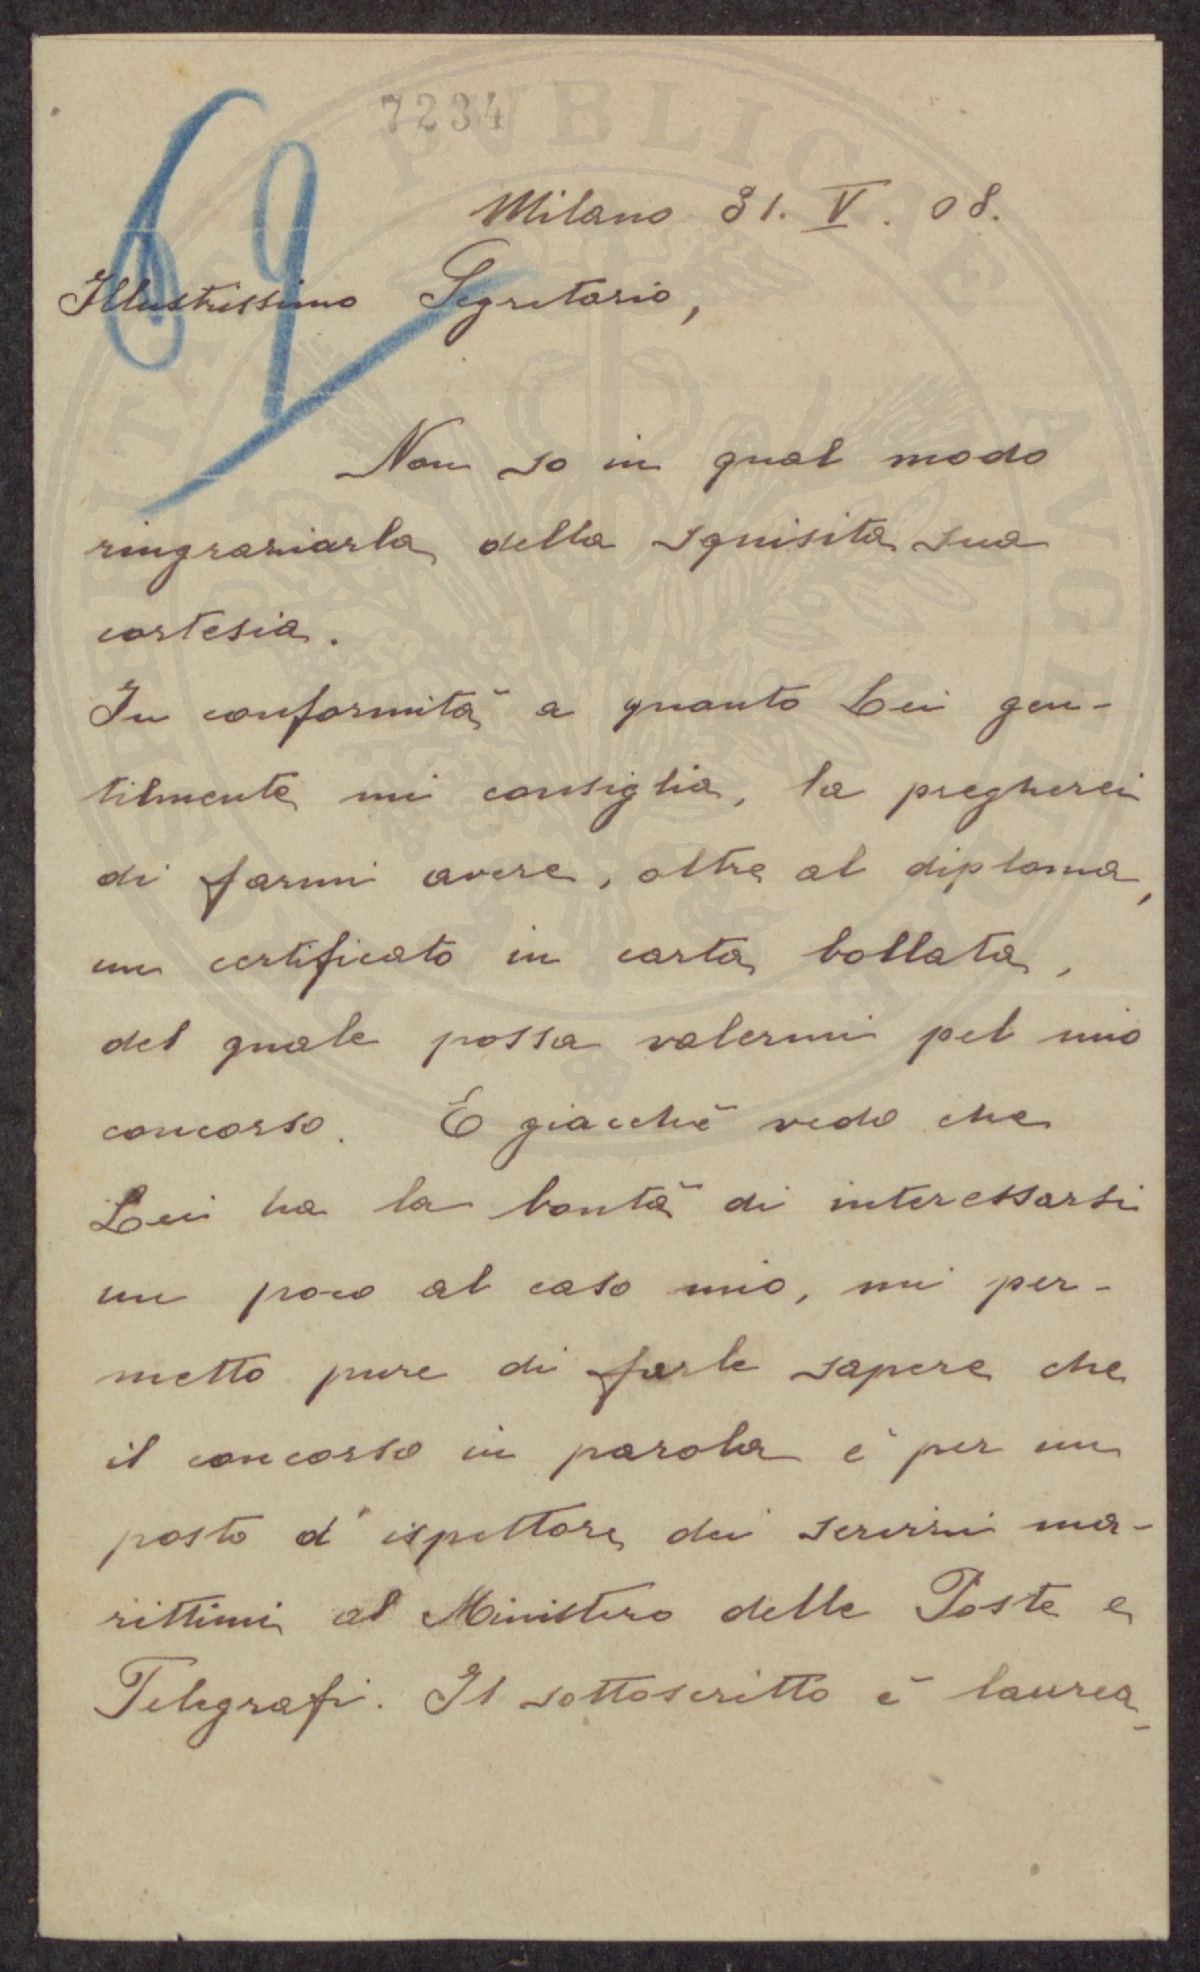 7234
69
Milano 31. V. 08.
Illustrissimo Segretario,
Non so in qual modo
ringraziarla della squisita sua
cortesia.
In conformità a quanto Lei gen-
tilmente mi consiglia, la pregherei
di farmi avere, oltre al diploma,
un certificato in carta bollata,
del quale possa valermi pel mio
concorso. E giacchè vedo che
Lei ha la bontà di interessarsi
un poco al caso mio, mi per-
metto pure di farle sapere che
il concorso in parola è per un
posto d'ispettore dei servizi ma-
rittimi al Ministero delle Poste e
Telegrafi. Il sottoscritto è laurea-